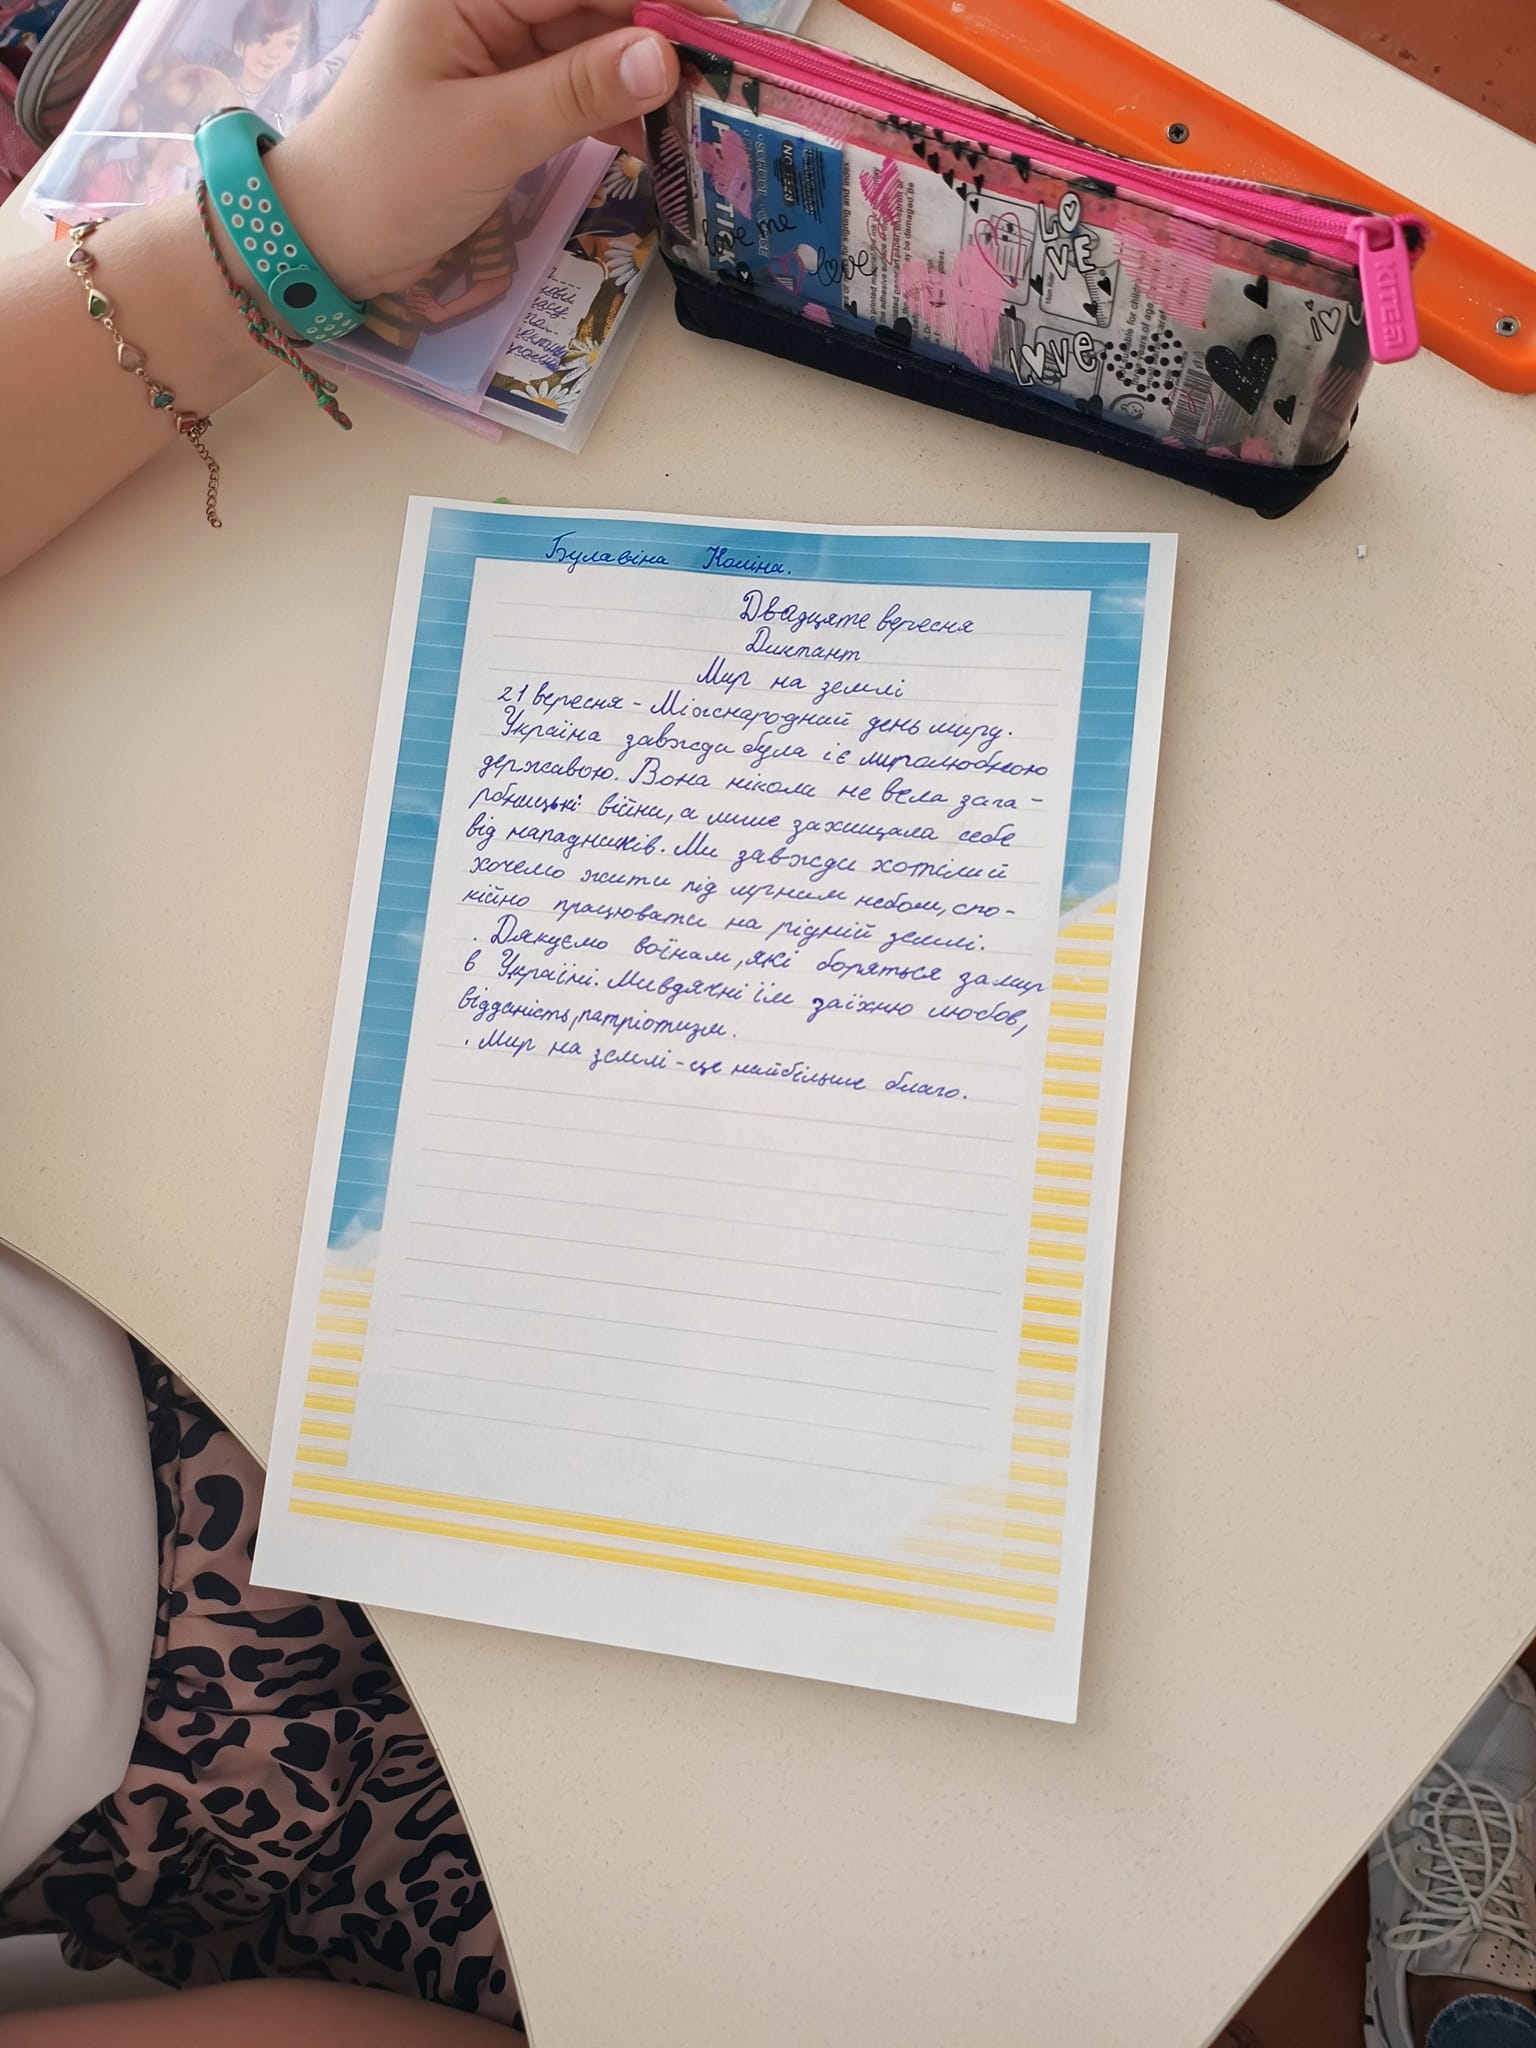 Булавіна Коліна.
Двадцяте вересня
Диктант
Мир на землі
21 вересня - Міжнародний день миру.
Україна завжди була і є миролюбною
державою. Вона ніколи не вела зага-
рбницькі війни, а лише захищала себе
від нападників. Ми завжди хотіли й
хочемо жити під мирним небом, спо-
кійно працювати на рідній землі.
. Дякуємо воїнам, які боряться за мир
в Україні. Ми вдячні їм за їхню любов,
відданість, патріотизм.
. Мир на землі - це найбільше благо.
love me
love
LOVE
Love
i
KITE
SCHOOL